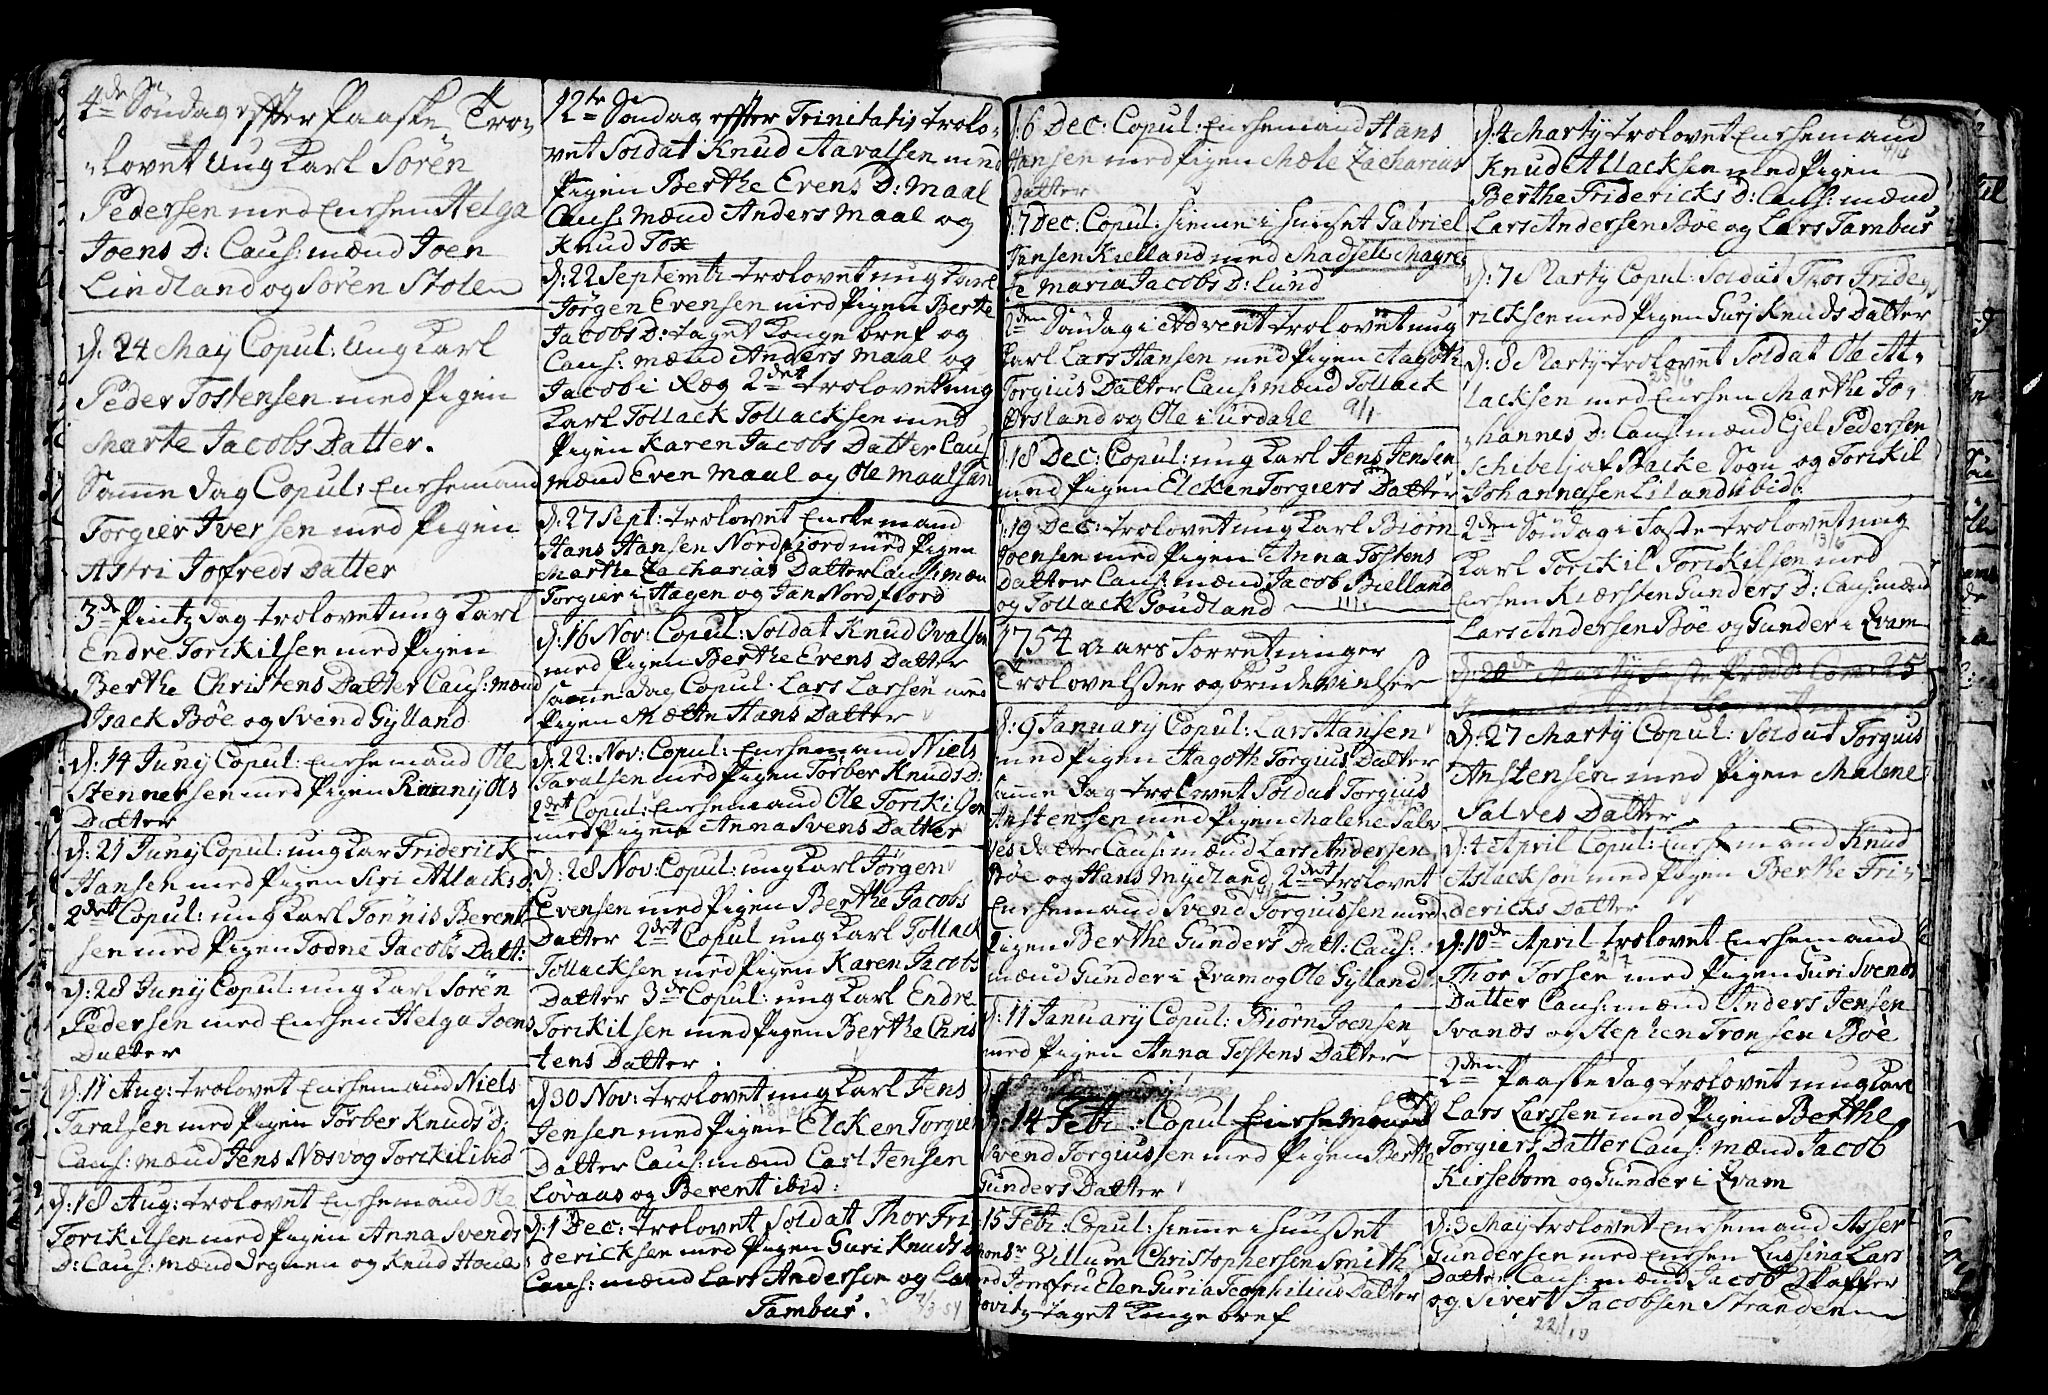 4de Søndag effter Paaske Tro,
,lovet Ung Karl Sørén
Pedersen med Enchen Helga
Joens D: Caus: mænd Joen
Lindland og Søren Stolen
d: 24 May Copul: Ung Karl
Peder Tostensen med Pigen
Marte Jacobs Datter.
Samme dag Copul: Enchemand
Torgier Iversen med Pigen
Astri Jofreds Datter
3de Pintzdag trolovet ung Karl
Endre Torkilsen med Pigen
Berthe Christens Datter Caus: mænd
Isack Bøe og Svend Gylland
d: 14 Juny Copul: Enchemand Ole
Stennersen med Pigen Rønnÿ Ols
Datter
d: 21 Juny Copul: ung Kar Friderick
Hansen med Pigen Siri Atlacks D:
2det Copul: ung Karl Tønnis Berent
sen med Pigen Todne Jacobs Datt:
d: 28 Juny Copul: ung Karl Sørén
Pedersen med Enchen Helga Joens
Datter
d: 11 Aug: trolovet Enchemand Niels
Taralsen med Pigen Tørber Knuds D:
Caus: mænd Jens Næsvog Torkil ibid
d: 18 Aug: trolovet Enchemand Ole
Torkilsen med Pigen Anna Svends
D: Caus: mænd Degnen og Knud Houe
12te Søndag effter Trinitatis trolo,
vet Soldat Knud Aavalsen med
Pigen Berthe Evens D: Maal
Caus: mænd Anders Maal og
Knud Tox
d: 22 Septembr trolovet ung Karl
Jørgen Evensen med Pigen Berte
Jacobs D: taget Konge bref og
Caus: mænd Anders Maal og
Jacob i Ræg 2det trolovet ung
Karl Tollack Tollacksen med
Pigen Karen Jacobs Datter Caus
mænd Even Maal og Ole Maal
d: 27 Sept: trolovet Enchemand
Hans Hansen Nordfiord med Pigen
Marthe Zacharias Datter Caus: mæn
Torgier i Hagen og Jan Nordfiord
d: 16 Nov: Copul: Soldat Knud Ovalsen
med Pigen Berthe Evens Datter
samme dag Copul: Lars Larsen med
Pigen Mætte Hans Datter
d: 22: Nov: Copul: Enchemand Niels
Taralsen med Pigen Tørber Knuds D:
2det Copul: Enchemand Ole Torkilsen
med Pigen Anna Svens Datter
d: 28 Nov: Copul: ung Karl Jørgen
Evensen med Pigen Berthe Jacobs
Datter 2det Copul ung Karl Tollack
Tollacksen med Pigen Karen Jacobs
Datter 3de Copul: ung Karl Endre
Torkilsen med Pigen Berthe Chris
tens Datter
d 30 Nov: trolovet ung Karl Jens
Jensen med Pigen Elcken Torgiers
Datter Caus: mænd Carl Jensen
Løvaas og Berent ibid:
d: 1 Dec: trolovet Soldat Thor Fri
dericksen med Pigen Guri Knuds D
Caus: mænd Lars Andersen og Lars
Tambur. 7/3 54
d: 6 Dec: Copul: Enchemand Hans
Hansen med Pigen Mæle Zacharias
datter
d: 7 Dec: Copul: hiemme i huuset Gabriel
Jansen Kielland med Madsell Magre
te Maria Jacobs D: Lund
2den Søndag i Advent trolovet ung
Karl Lars Hansen med Pigen Aagoth
Torgius Datter Caus: mænd Tollack
Ørsland og Ole i Urdahl 9/1
d: 18 Dec: Copul: ung Karl Jens Jensen
med Pigen Elcken Torgiers Datter
d: 19 Dec: trolovet ung Karl Biørn
Joensen med Pigen Anna Tostens
Datter Caus: mænd Jacob Bielland
og Tollack Goudland 11/1
1754 Aars Forretninger
Trolovelser og brudevielser
d: 9 January Copul: Lars Hansen
med Pigen Aagoth Torgius Datter
samme dag trolovet Soldat Torgius
Anstensen med Pigen Malene Sal
ves datter Caus: mænd Lars Andersen
Bøe og Hans Mydland 2det trolovet
Enchemand Svend Torgiussen med
Pigen Berthe Gunders Datt: Caus:
mænd Gunder i Qvam og Ole Gylland
d: 11 January Copul: Biørn Joensen
med Pigen Anna Tostens Datter
d: 14 Febr: Copul Enchemand
Svend Torgiussen med Pigen Berthe
Gunders Datter
15 Febr: Copul: hiemme i huuset
Monsr Villum Christophersen Smith
med Jomfru Elen Guria Teophilius Datter
taget Konge bref
d: 4 Marty trolovet Enchemand
Knud Atlacksen med Pigen
Berthe Fridericks D: Caus: mænd
Lars Andersen Bøe og Lars Tambur
d: 7 Marty Copul: Soldat Thor Fride,
ricksen med Pigen Gurj Knuds Datter
d: 8 Marty trolovet Soldat Ole At,
lacksen med Enchen Marthe Jo,
,hannes D: Caus: mænd Ejel Pedersen
Schibelj af Backe Sogn og Torkil
Johannesen Liland ibid:
2den Søndag i Faste trolovet ung
Karl Torkil Torkilsen med
Enchen Kiersten Gunders D: Caus: mænd
Lars Andersen Bøe og Gunder i Qvam
d: 20de Marty
d: 27 Marty Copul: Soldat Torgius
Anstensen med Pigen Malene
Salves Datter
d: 4 April Copul: Enchemand Knud
Aslacksen med Pigen Berthe Fri,
dericks Datter
d: 10de April trolovet Enchemand
Thor Torsen med Pigen Guri Svends
Datter Caus: mænd Anders Jensen
Svanæs og Stephen Tronsen Bøe
2den Paaske dag trolovet ung Karl
Lars Larssen med Pigen Berthe
Torgiers Datter Caus: mænd Jacob
Kirsebom og Gunder i Qvam
d: 3 May trolovet Enchemand Asser
Gundersen med Enchen Lussina Lars
Datter Caus: mænd Jacob Skaffer
og Sivert Jacobsen Stranden
22/10